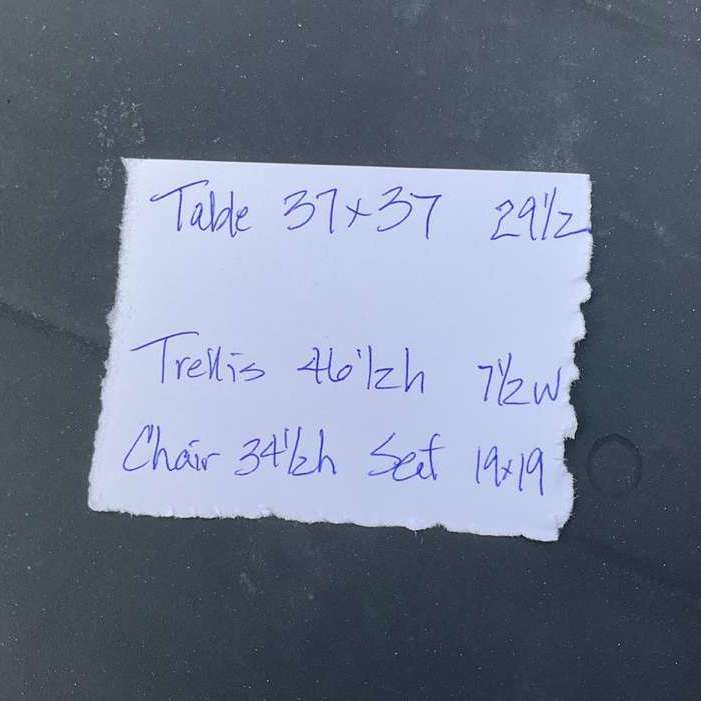 Table 37x37 29 1/2
Trellis 46 1/2h 7 1/2w
Chair 34 1/2h Seat 19x19